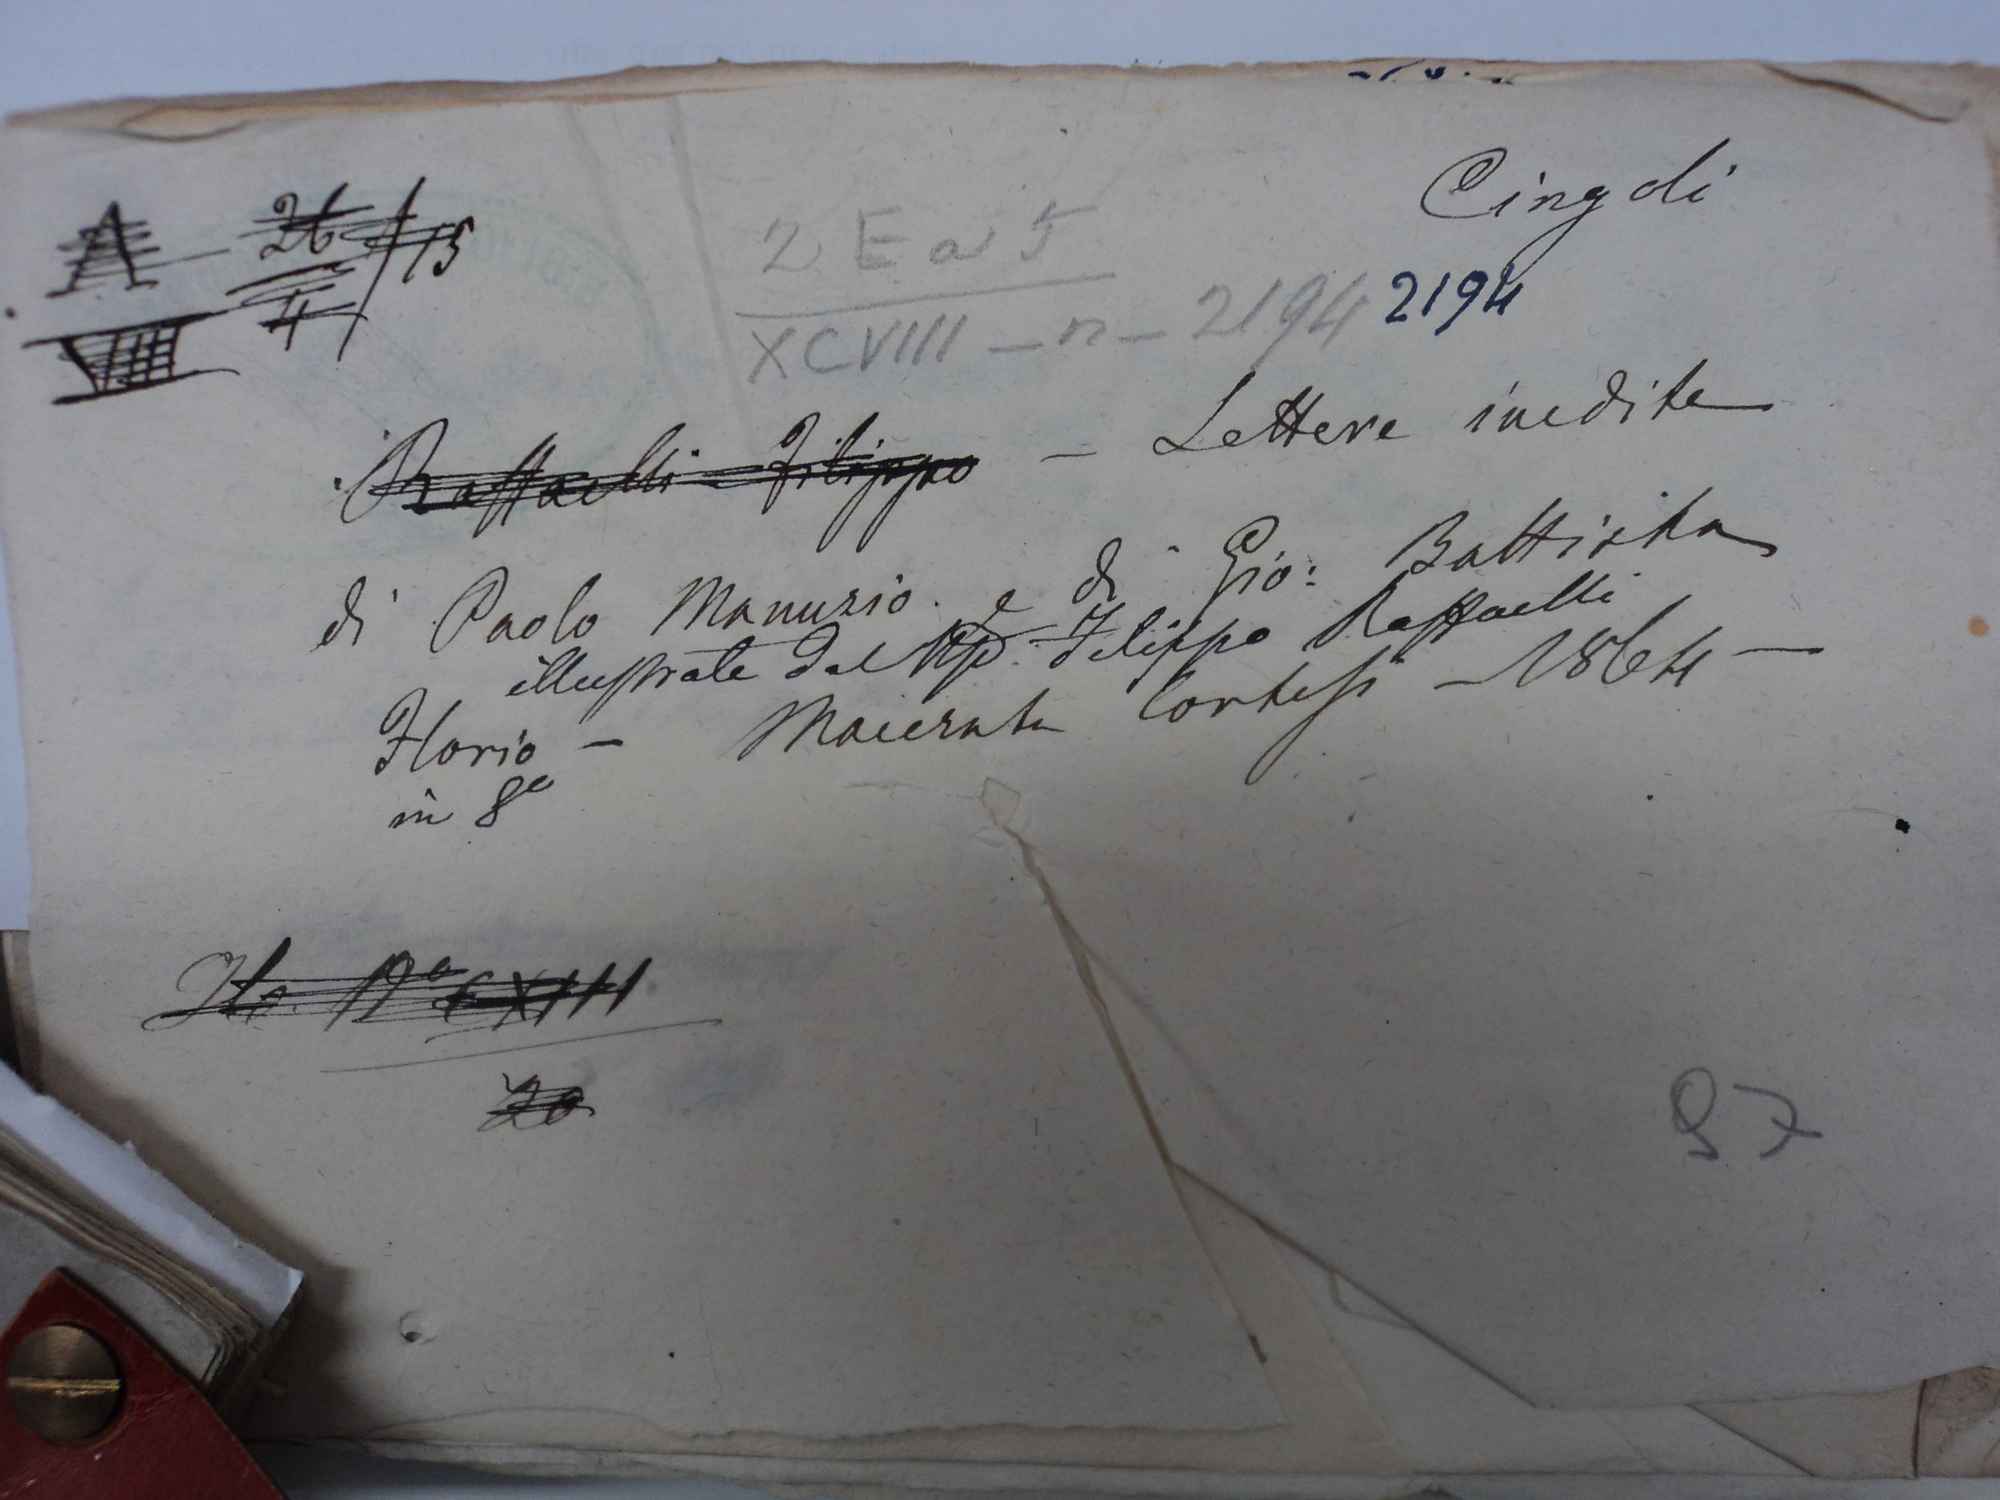 Cingoli
A 26 / 15
VIII 4
2 E a 5
XCVIII - n - 2194 2194
Raffaelli Filippo - Lettere inedite
di Paolo Manuzio e di Gio: Battista
illustrate dal Filippo Raffaelli
Florio - Macerata Cortesi - 1864 -
in 8°
N° CXIII
20
97